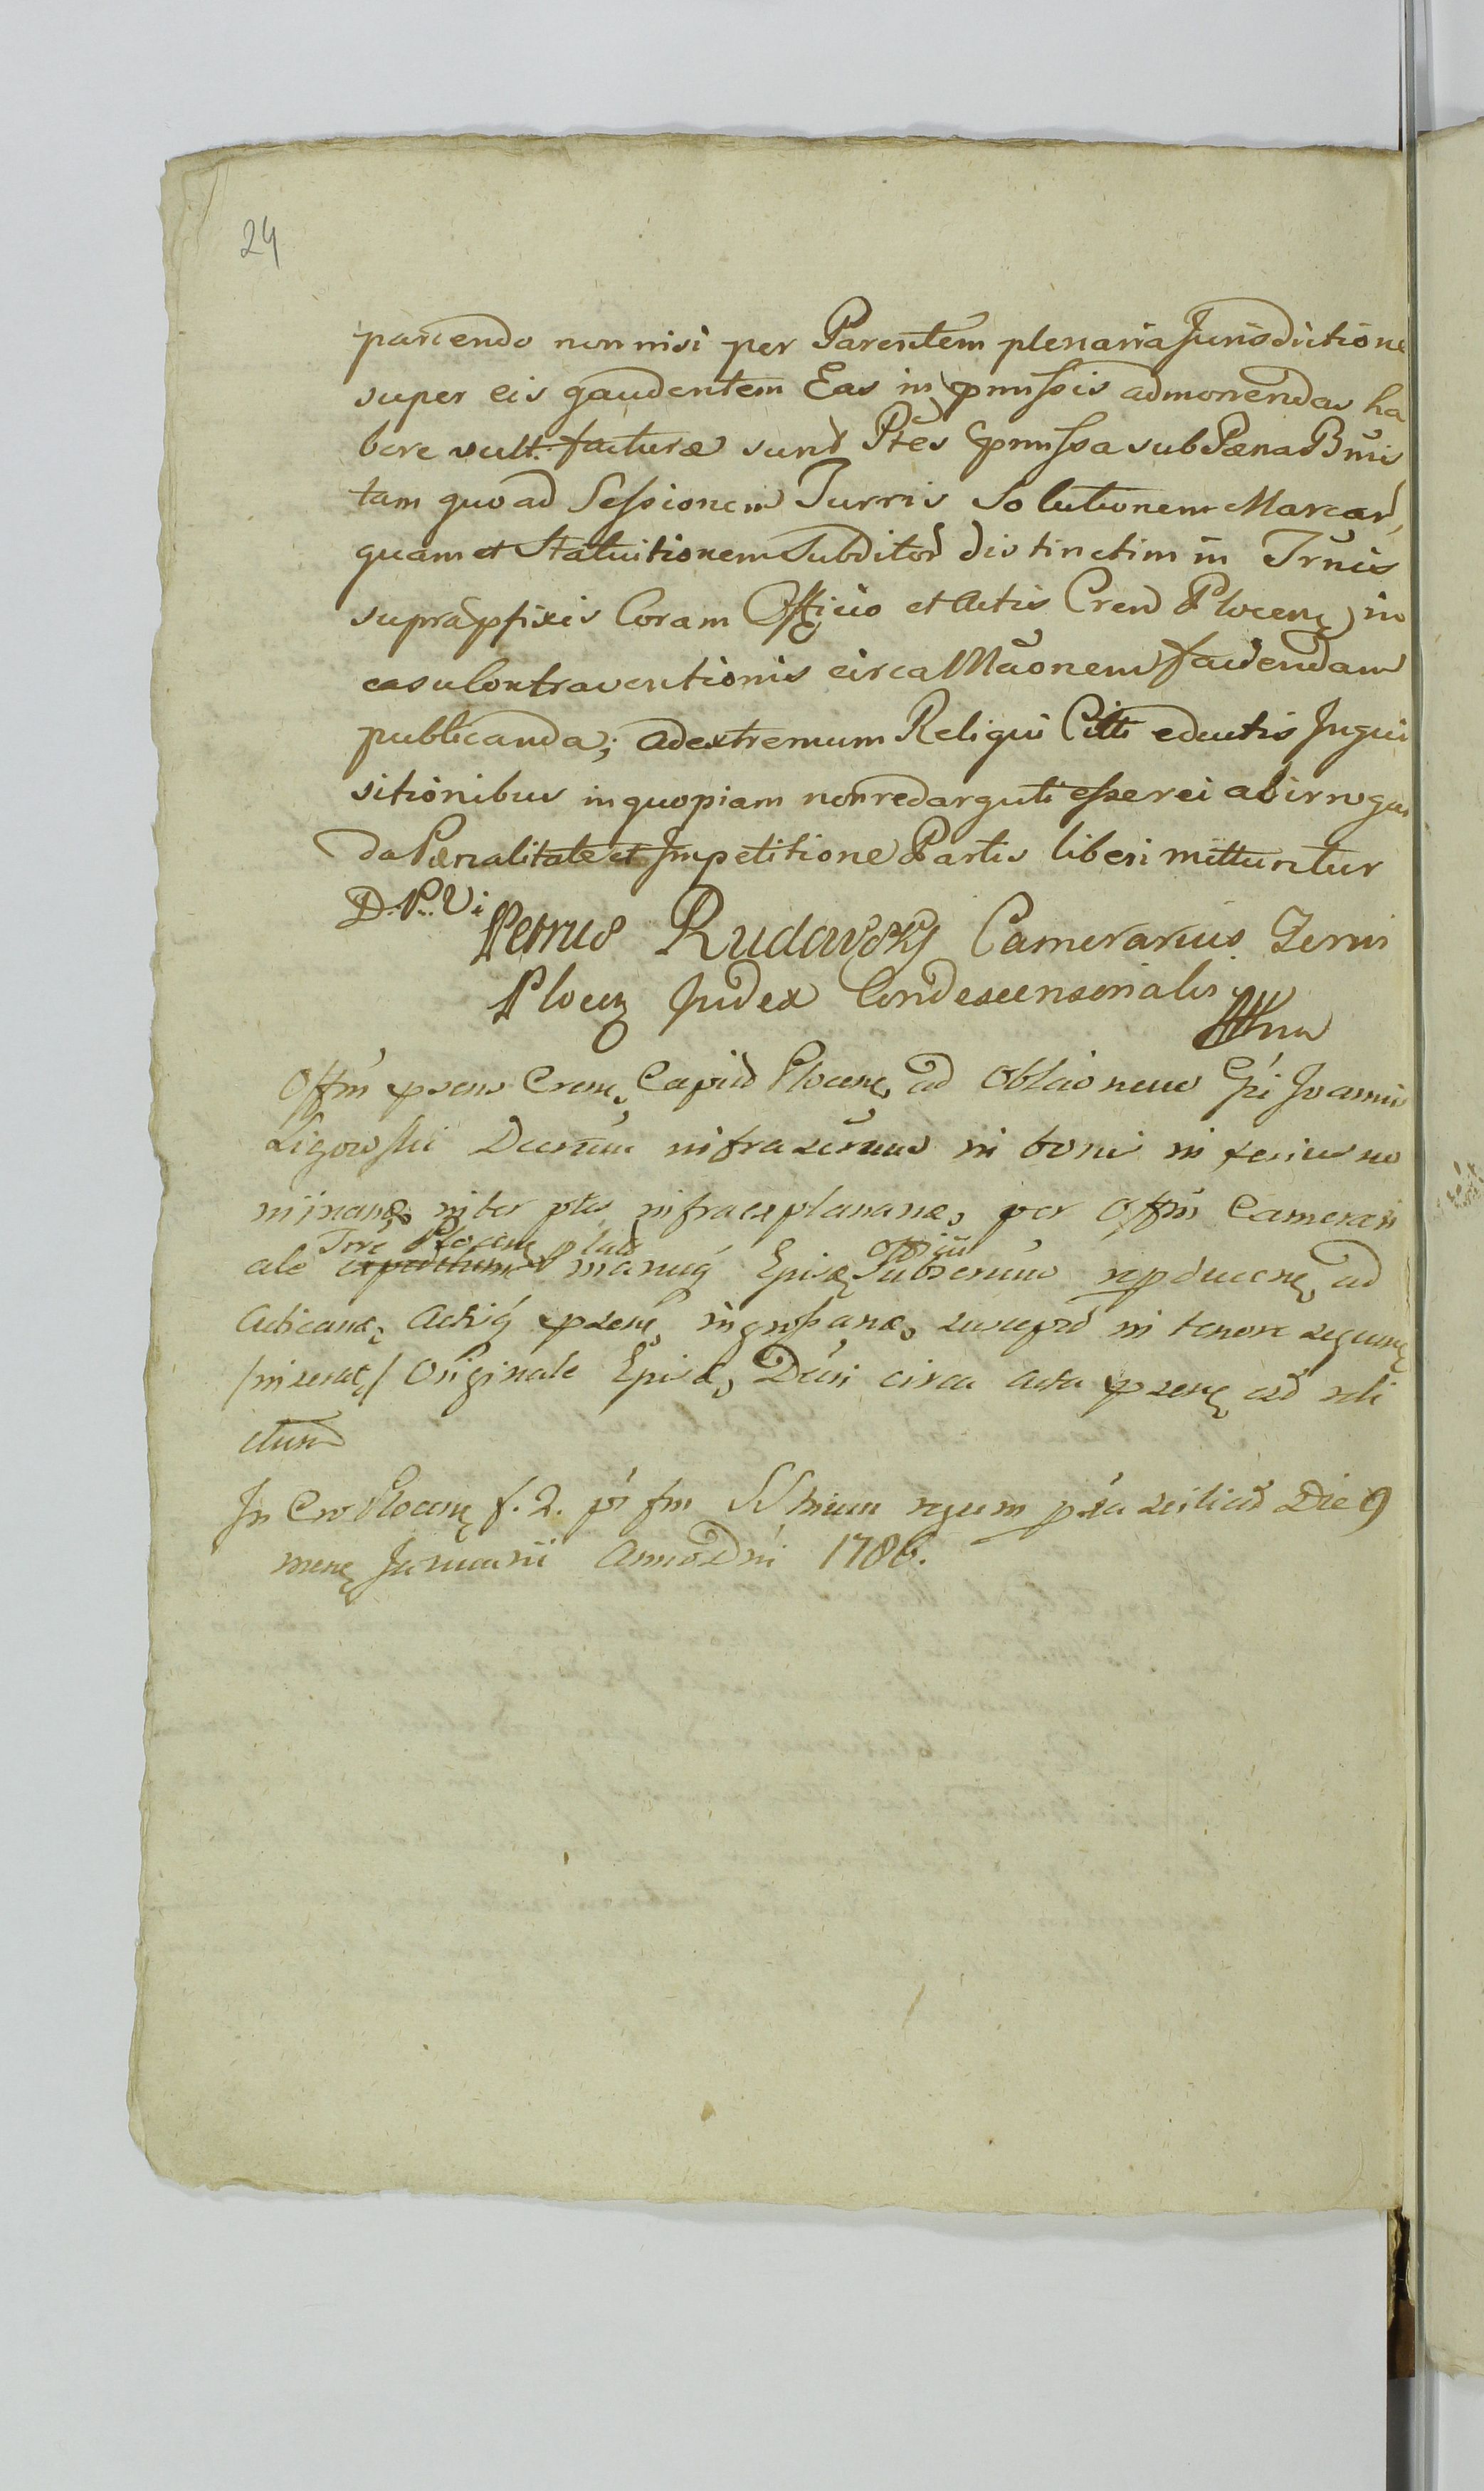 24
pariendo non nisi per Parentem plenaria Jurisdictione
super eis gaudentem Eas in pmissis admonendas ha
bere vult. facturæ sund Ptes pmissa sub Pæna Bnis
tam quo ad Sessionem Turris Solutionem Marcar,
quam et Statuitionem Subditor distinctim in Trnis
supra pfixis Coram Officio et Actis Cren Plocen in
casu Contraventionis circa Mãonem faciendam
publicanda; ad extremum Reliqui Citti eductis Inqui
sitionibus in quopiam non redarguti esse rei ab irrogan
da Pænalitate et Impetitione Partis liberi mittuntur
D. P. Vi
Petrus Rudowsky Camerarius Terris
Plocen Judex Condescensorialis
Offm psens Crense Capid Plocen ad Oblaonem Gsi Joannis
Ligowski Decretum infrascriptum in boni inferius no
minans inter ptes infra explananas per Offm Camerari
Trre Plocen Offii
ale expeditum manuq Ejusd Subscrium repducens ad
acticand Actisq psen ingrossand suscepit in tenore sequen
/inserat/ Originale Ejusd Dcti circa acta psen est reli
ctum
In Cro Plocen f. 2. p fm SS trium regum pxia scilicet Die 9
mens Januarii Anno Dni 1786.